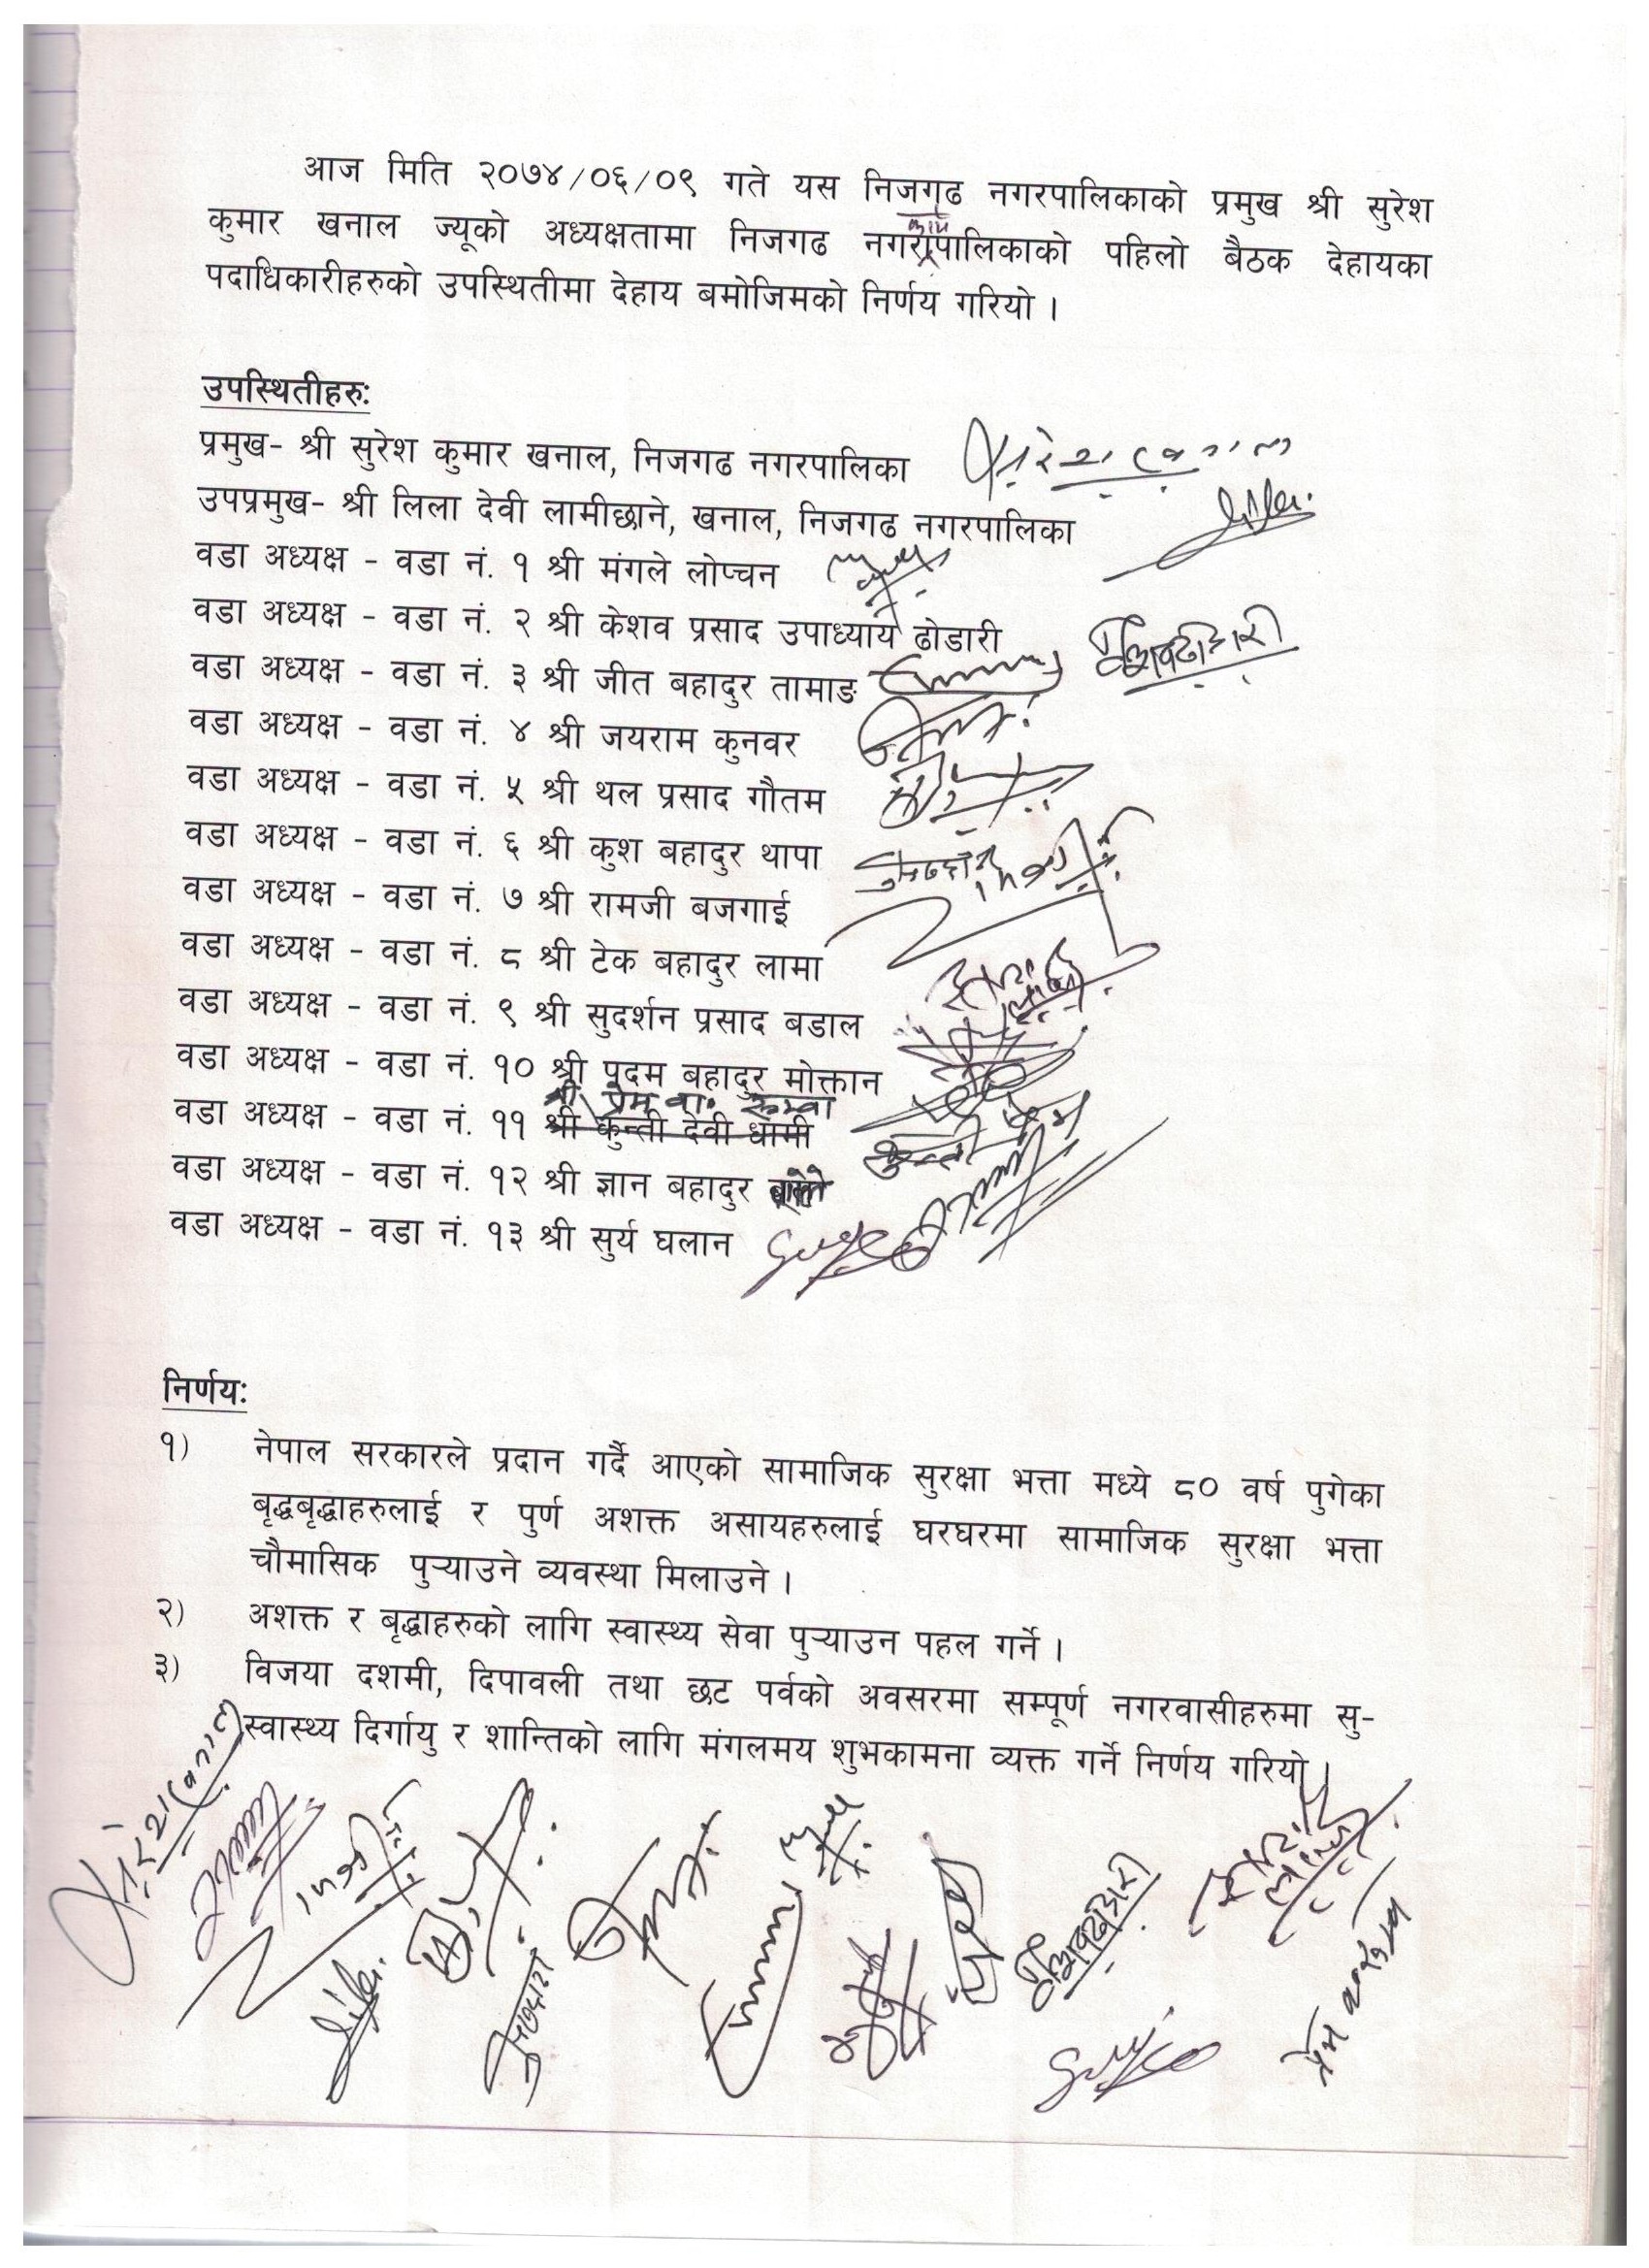 आज मिति २०७४/०६/०९ गते यस निजगढ नगरपालिकाको प्रमुख श्री सुरेश
कुमार खनाल ज्यूको अध्यक्षतामा निजगढ नगरपालिकाको पहिलो बैठक देहायका
पदाधिकारीहरुको उपस्थितीमा देहाय बमोजिमको निर्णय गरियो ।
उपस्थितीहरुः
प्रमुख- श्री सुरेश कुमार खनाल, निजगढ नगरपालिका
उपप्रमुख- श्री लिला देवी लामीछाने, खनाल, निजगढ नगरपालिका
वडा अध्यक्ष - वडा नं. १ श्री मंगले लोप्चन
वडा अध्यक्ष - वडा नं. २ श्री केशव प्रसाद उपाध्याय ढोडारी
वडा अध्यक्ष - वडा नं. ३ श्री जीत बहादुर तामाङ
वडा अध्यक्ष - वडा नं. ४ श्री जयराम कुनवर
वडा अध्यक्ष - वडा नं. ५ श्री थल प्रसाद गौतम
वडा अध्यक्ष - वडा नं. ६ श्री कुश बहादुर थापा
वडा अध्यक्ष - वडा नं. ७ श्री रामजी बजगाई
वडा अध्यक्ष - वडा नं. ८ श्री टेक बहादुर लामा
वडा अध्यक्ष - वडा नं. ९ श्री सुदर्शन प्रसाद बडाल
वडा अध्यक्ष - वडा नं. १० श्री पदम बहादुर मोक्तान
श्री प्रेम वा. रुम्बा
वडा अध्यक्ष - वडा नं. ११ श्री कुन्ती देवी धामी
वडा अध्यक्ष - वडा नं. १२ श्री ज्ञान बहादुर
वडा अध्यक्ष - वडा नं. १३ श्री सुर्य घलान
निर्णयः
१) नेपाल सरकारले प्रदान गर्दै आएको सामाजिक सुरक्षा भत्ता मध्ये ८० वर्ष पुगेका
बृद्धबृद्धाहरुलाई र पुर्ण अशक्त असायहरुलाई घरघरमा सामाजिक सुरक्षा भत्ता
चौमासिक पुऱ्याउने व्यवस्था मिलाउने ।
२) अशक्त र बृद्धाहरुको लागि स्वास्थ्य सेवा पुऱ्याउन पहल गर्ने ।
३) विजया दशमी, दिपावली तथा छट पर्वको अवसरमा सम्पूर्ण नगरवासीहरुमा सु-
स्वास्थ्य दिर्गायु र शान्तिको लागि मंगलमय शुभकामना व्यक्त गर्ने निर्णय गरियो ।